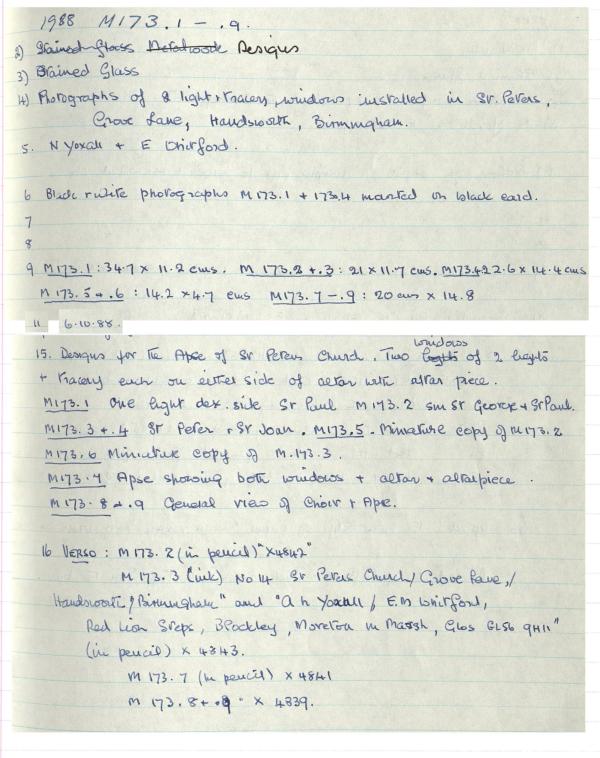 1988 M173.1 - .9.
2) Stained Glass Designs
3) Stained Glass
4) Photographs of 2 light + tracery windows installed in St. Peters,
Grove Lane, Handsworth, Birmingham.
5. N Yoxall + E Whitford.
6 Black + white photographs M173.1 + 173.4 mounted on black card.
7
8
9 M173.1 : 34.7 x 11.2 cms. M 173.2 +.3 : 21 x 11.7 cms. M173.4 22.6 x 14.4 cms
M173.5 + .6 : 14.2 x 4.7 cms M173.7 - .9 : 20 cms x 14.8
11 6.10.88.
15. Designs for the Apse of St Peters Church. Two windows of 2 lights
+ tracery each on either side of altar with altar piece.
M173.1 One light dex. side St Paul M173.2 sin St George + St Paul.
M173.3 + .4 St Peter + St Joan. M173.5 - Minature copy of M173.2
M173.6 Miniature copy of M.173.3.
M173.7 Apse showing both windows + altar + altarpiece.
M173.8 + .9 General view of Choir + Apse.
16 VERSO : M173.2 (in pencil) "X4842"
M173.3 (ink) No 14 St Peters Church / Grove Lane, /
Handsworth / Birmingham" and "A N Yoxall / E.M Whitford,
Red Lion Steps, Blockley, Moreton in Marsh, Glos GL56 9HH"
(in pencil) X 4343.
M 173.7 (in pencil) X 4841
M 173.8 + .9 " X 4839.